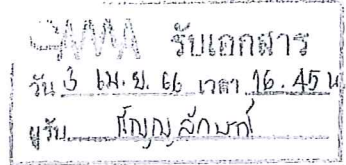 GMM รับเอกสาร
วัน 3 เม.ย. 66 เวลา 16.45 น
ผู้รับ กัญญลักษณ์